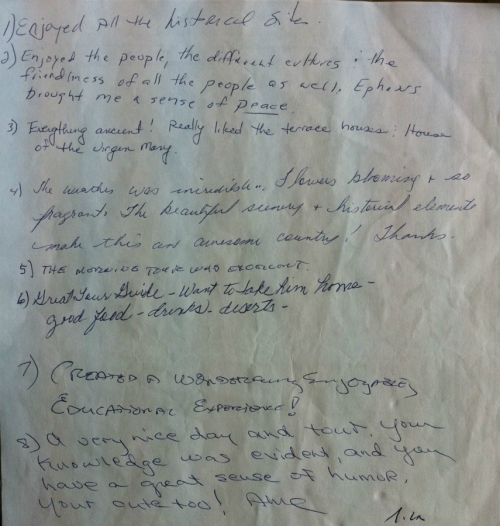 1) Enjoyed all the historical sites.
2) Enjoyed the people, the different cultures & the
friendliness of all the people as well. Ephesus
brought me a sense of peace
3) Everything ancient! Really liked the terrace houses & House
of the Virgin Mary.
4) The was incredible. Flowers blooming + so
fragrant. The beautiful scenery + historical elements
make this an awesome country! Thanks.
5) THE MORNING TOUR WAS EXCELLENT.
6) Great Tour Guide - Want to take him home -
good food - drinks - deserts -
7) CREATED A WONDERFUL, ENJOYABLE,
EDUCATIONAL EXPERIENCE!
8) A very nice day and tour. Your
knowledge was evident, and you
have a great sense of humor.
Your cute too!